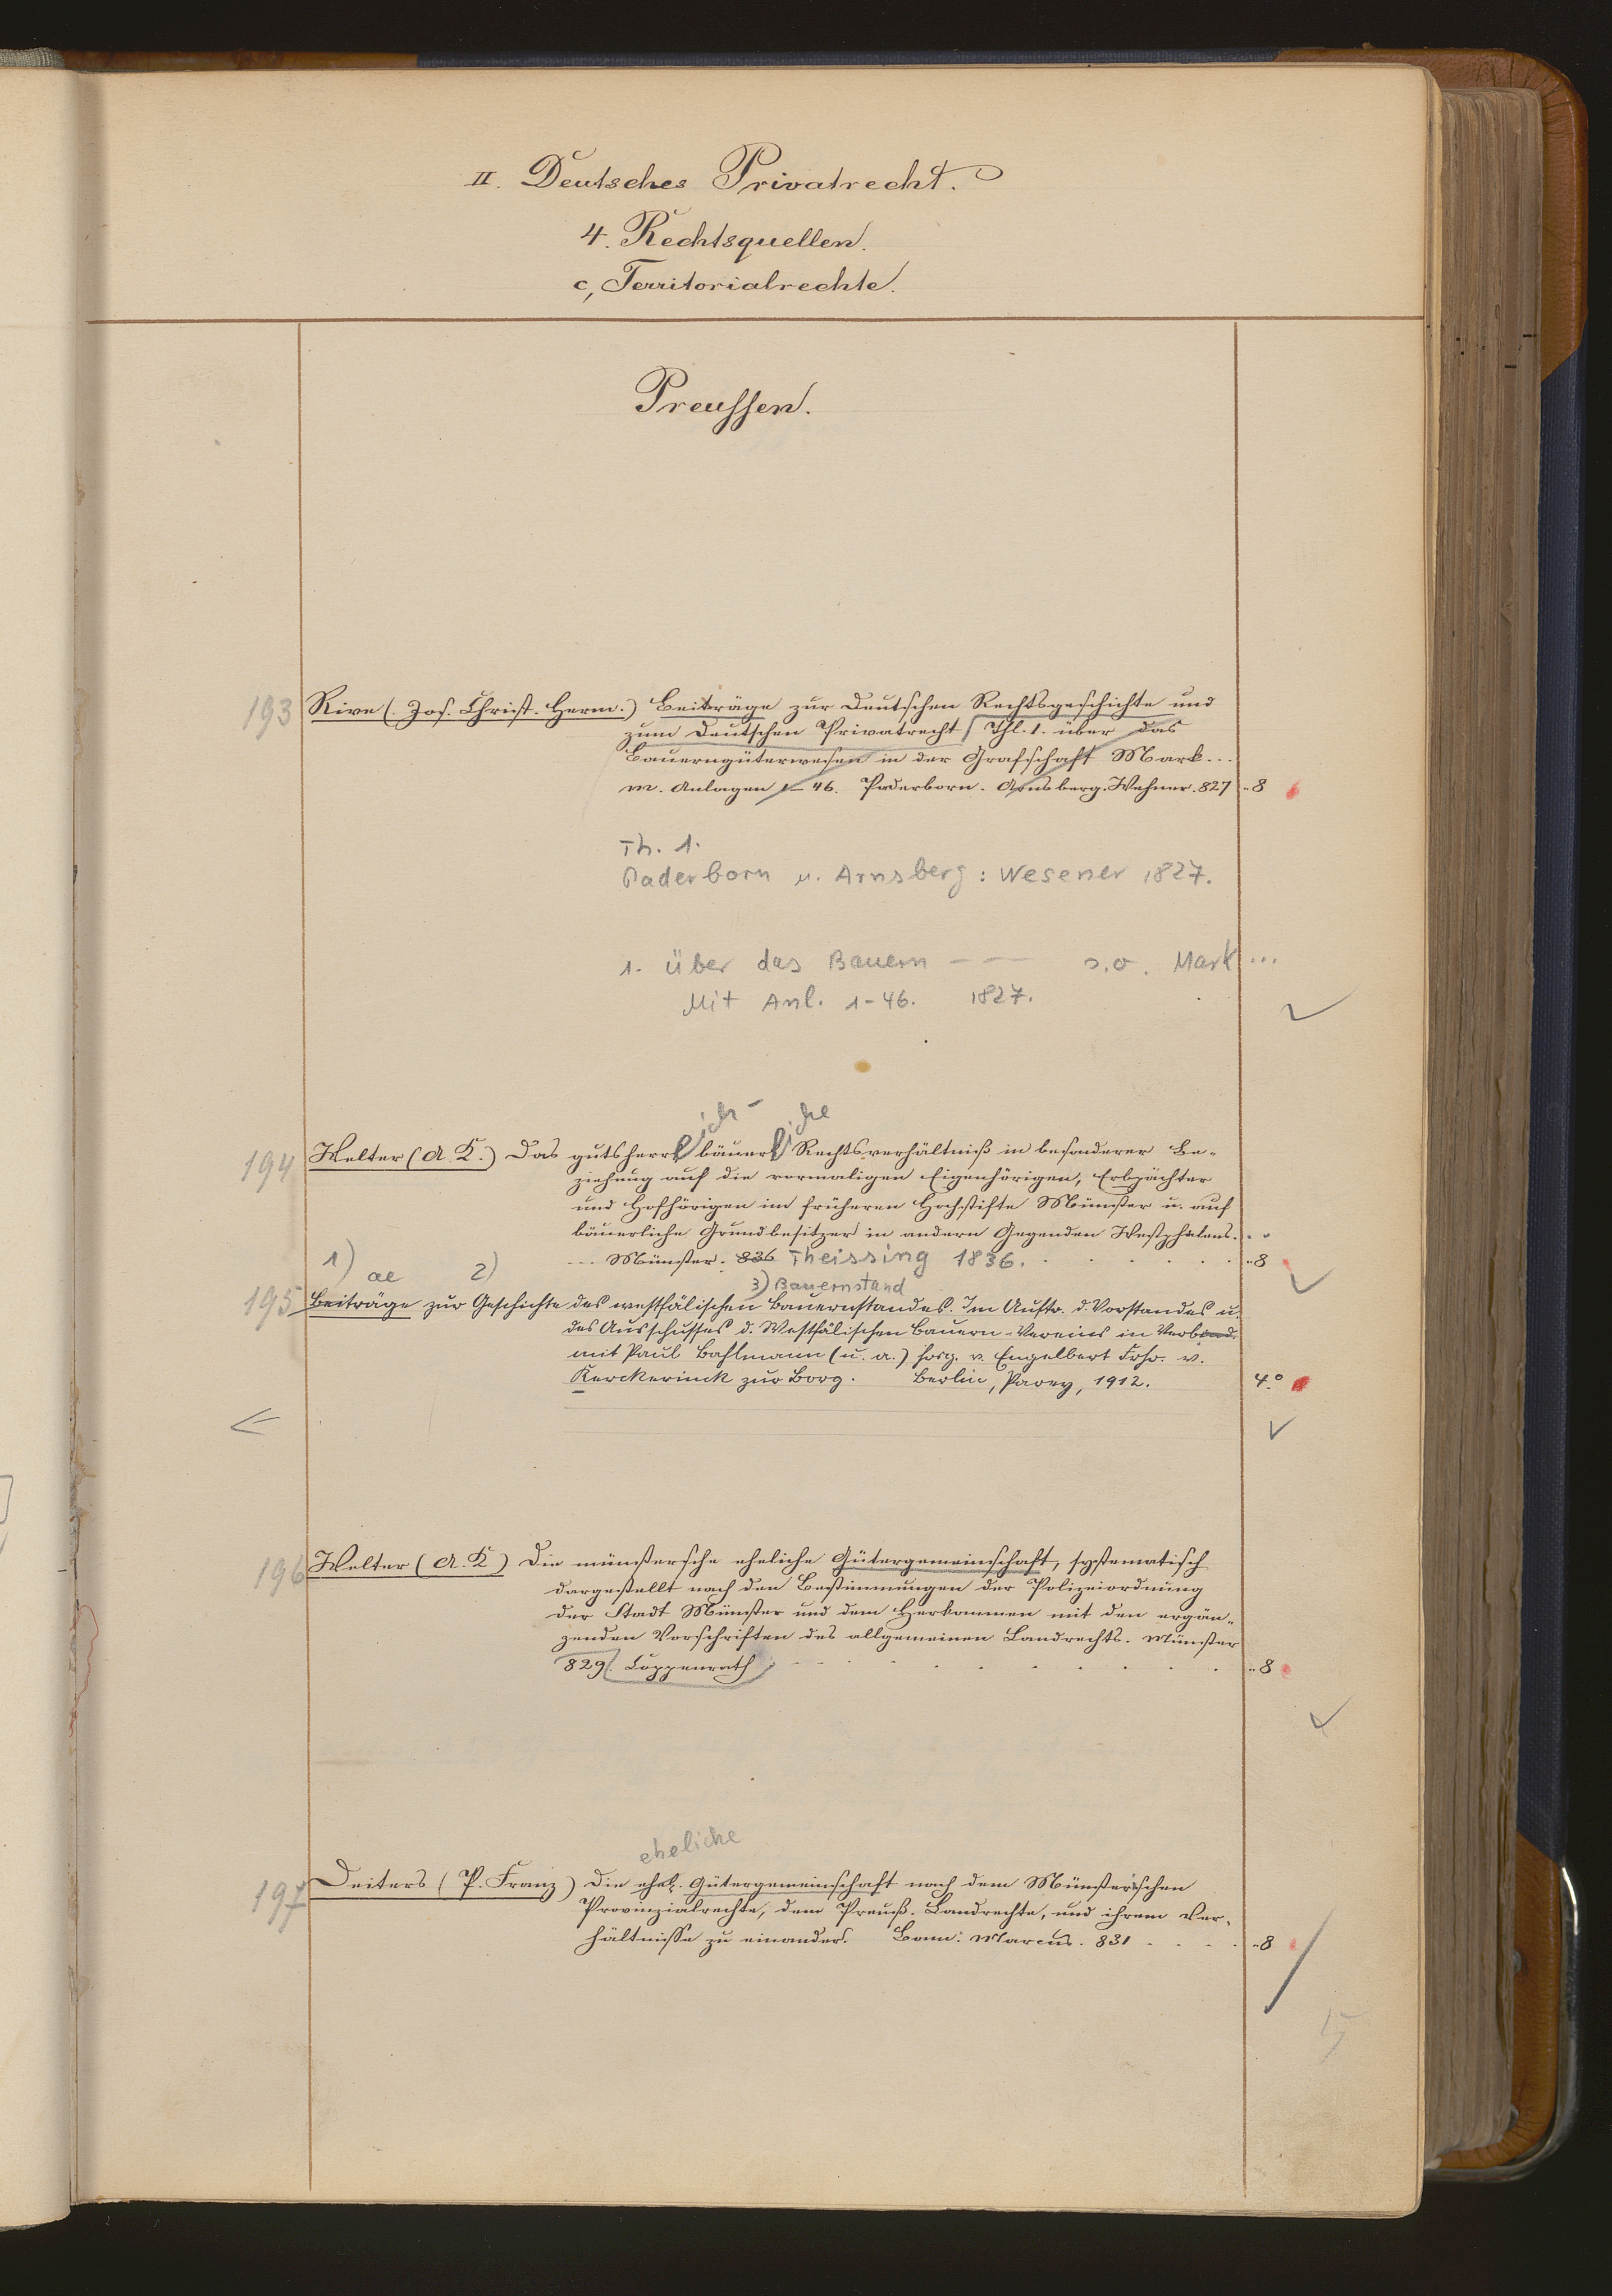 II. Deutsches Privatrecht.
4. Rechtsquellen.
c, Territorialrechte.
Preussen.
193 Rive (. Jos. Christ. Herm.) Beiträge zur Deutschen Rechtsgeschichte und
zum Deutschen Privatrecht Thl. 1. über das
Bauerngüterwesen in der Grafschaft Mark...
m. Anlagen 1–46. Paderborn. Arnsberg. Wesener. 827 ..8
Th. 1.
Paderborn u. Arnsberg: Wesener 1827.
1. Über das Bauern – – s.o. Mark ...
Mit Anl. 1-46. 1827.
ich- che
194 Welter (A. K.) Das gutsherrl. bäuerl. Rechtsverhältniß in besonderer Be-
ziehung auf die vormaligen Eigenhörigen, Erbpächter
und Hofhörigen im früheren Hochstifte Münster u. auf
bäuerliche Grundbesitzer in andern Gegenden Westphalens...
... Münster. 836 Theissing 1836. ..8
1) ae 2) 3) Bauernstand
195 Beiträge zur Geschichte des westfälischen Bauernstandes. Im Auftr. d. Vorstandes u.
des Ausschusses d. Westfälischen Bauern-Vereins in Verbind.
mit Paul Bahlmann (u. a.) hrsg. v. Engelbert Frhr. v.
Kerckerinck zur Borg. Berlin, Parey, 1912. 4.°
196 Welter (A. K) Die münstersche eheliche Gütergemeinschaft, systematisch
dargestellt nach den Bestimmungen der Polizeiordnung
der Stadt Münster und dem Herkommen mit den ergän-
zenden Vorschriften des allgemeinen Landrechts. Münster
829. Coppenrath ..8
eheliche
197 Deiters (P. Franz) Die ehel. Gütergemeinschaft nach dem Münsterischen
Provinzialrechte, dem Preuß. Landrechte, und ihrem Ver-
hältnisse zu einander. Bonn: Marcus. 831 ..8